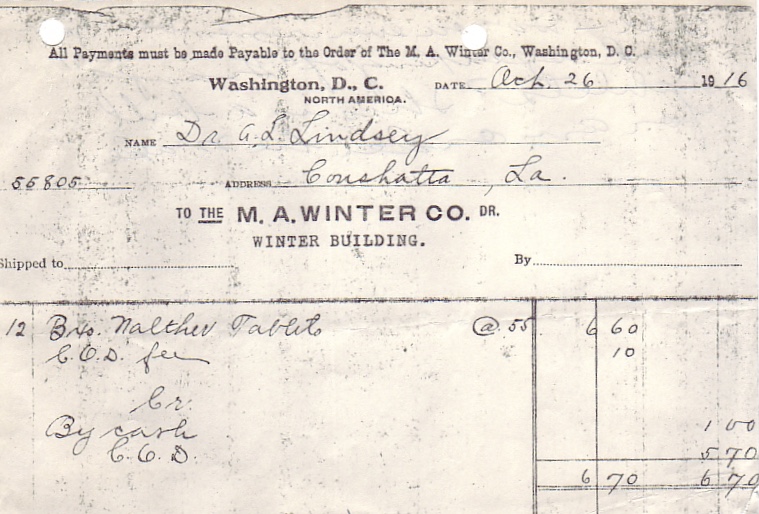 All Payments must be made Payable to the Order of The M. A. Winter Co., Washington, D. C.
Washington, D., C. DATE Oct. 26 1916
NORTH AMERICA.
NAME Dr. A. L. Lindsey
55805 ADDRESS Coushatta, La.
TO THE M. A. WINTER CO. DR.
WINTER BUILDING.
Shipped to By
12 Bxs. Nalther Tablets @ 55 6 60
C.O.D. fee 10
Cr.
By cash 1 00
C.O.D. 5 70
6 70 6 70